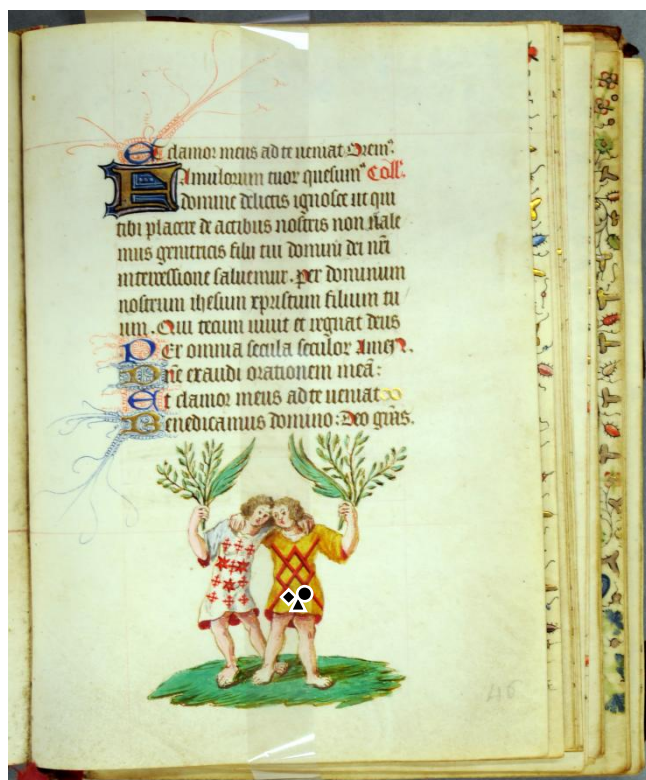 Et clamor meus ad te ueniat. Orem⁹.
Famulorum tuoꝝ quesum⁹ Coll'.
domine delictis ignosce ut qui
tibi placere de actibus nostris non uale
mus genitricis filii tui domini dei nr̄i
intercessione saluemur. per dominum
nostrum ihesum xpristum filium tu
um. Qui tecum uiuit et regnat deus
Per omnia secula seculoꝝ Amen.
Dn̄e exaudi orationem meā:
Et clamor meus ad te ueniat
Benedicamus domino: Deo grās.
46